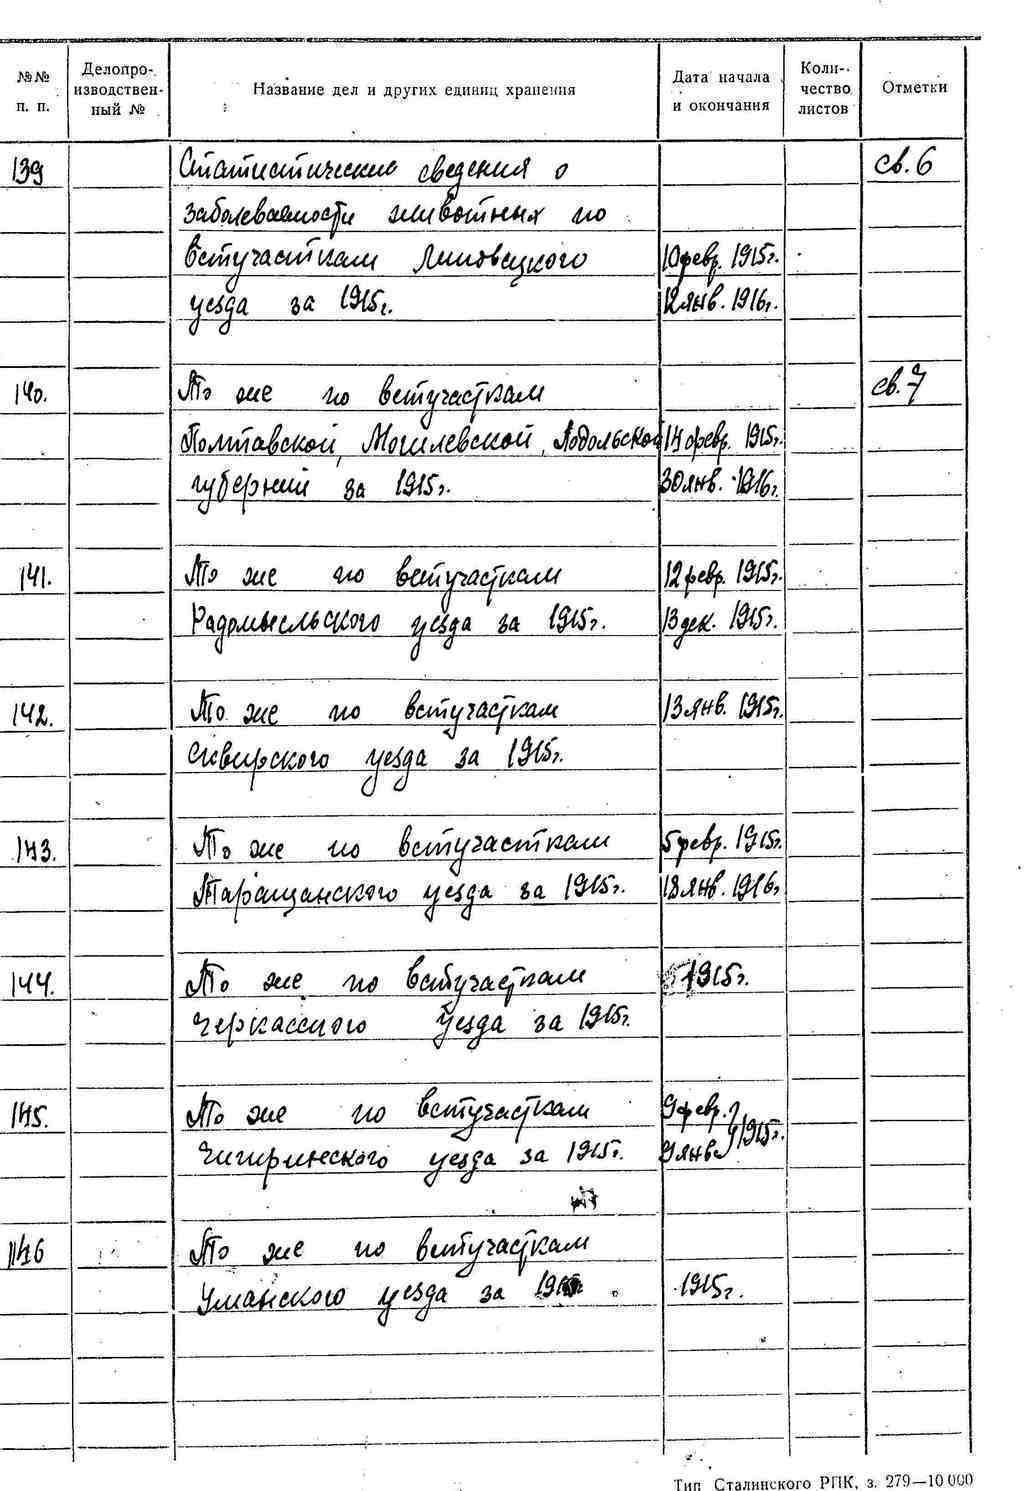 №№ п. п. Делопроизводственный № Название дел и других единиц хранения Дата начала и окончания Количество листов Отметки
139 Статистические сведения о св. 6
заболеваемости животных по
ветучасткам Липовецкого 10 февр. 1915г.
уезда за 1915г. 12 янв. 1916г.
140. То же по ветучасткам св. 7
Полтавской, Могилевской, Подольской 14 февр. 1915г.
губерний за 1915г. 30 янв. 1916г.
141. То же по ветучасткам 12 февр. 1915г.
Радомысльского уезда за 1915г. 13 дек. 1915г.
142. То же по ветучасткам 13 янв. 1915г.
Сквирского уезда за 1915г.
143. То же по ветучасткам 5 февр. 1915г.
Таращанского уезда за 1915г. 18 янв. 1916г.
144. То же по ветучасткам 1915г.
Черкасского уезда за 1915г.
145. То же по ветучасткам 9 февр.
Чигиринского уезда за 1915г. 9 янв. 1915г.
146 То же по ветучасткам
Уманского уезда за 1915г. 1915г.
Тип Сталинского РПК, з. 279—10 000